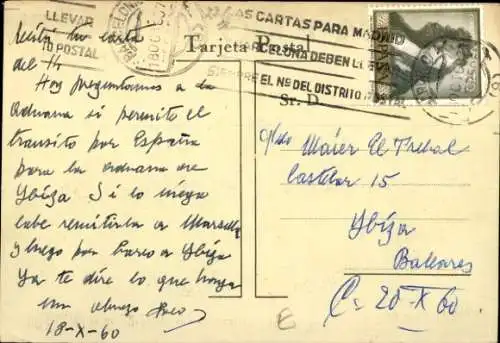 LLEVAR
TO POSTAL
BARCELONA
18 OCT
AS CARTAS PARA MADRID
CELONA DEBEN LLEVAR
SIEMPRE EL Nº DEL DISTRITO POSTAL
ESPAÑA
Tarjeta Postal
Sr. D.
Recibí tu carta
del 14
Hoy preguntamos a la
Aduana si permite el
transito por España
para la aduana de
Ybiza Si lo niega
cabe remitirla a Marsella
y luego por barco a Ybiza
Ya te dire lo que haya
un abrazo
18-X-60
Maier El Trebal
Castelar 15
Ybiza
Baleares
C = 20-X-60
E